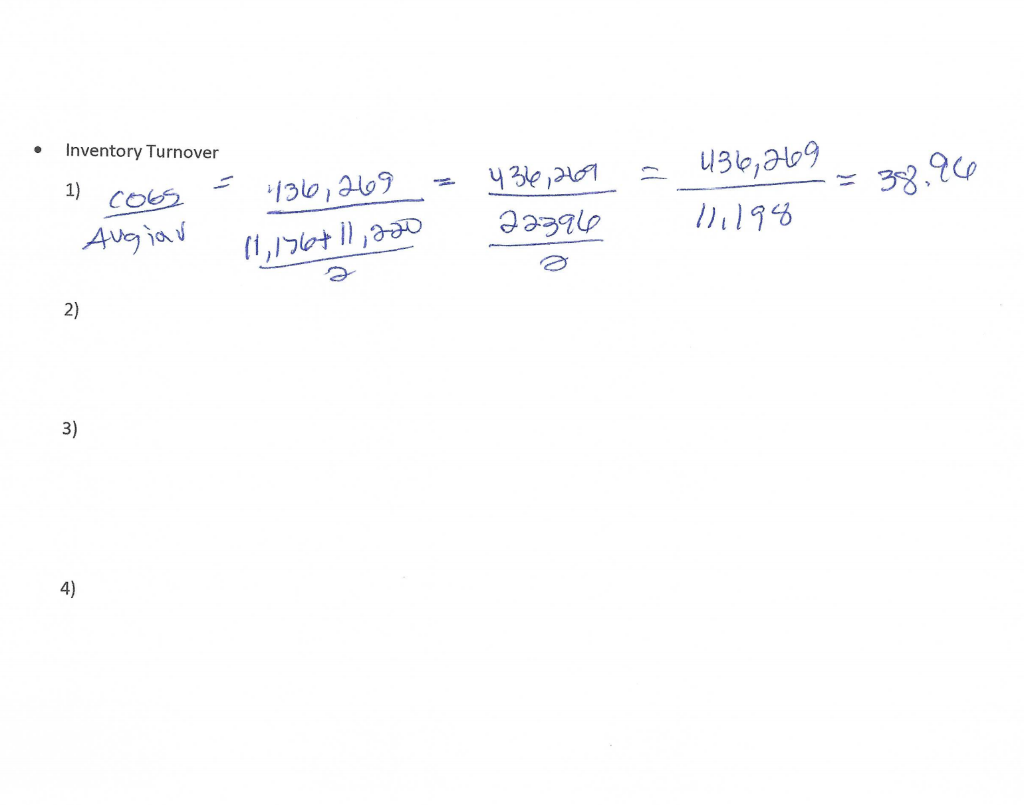 • Inventory Turnover
1) COGS / Avg inv = 436,269 / ((11,176 + 11,220) / 2) = 436,269 / (22396 / 2) = 436,269 / 11,198 = 38.96
2)
3)
4)